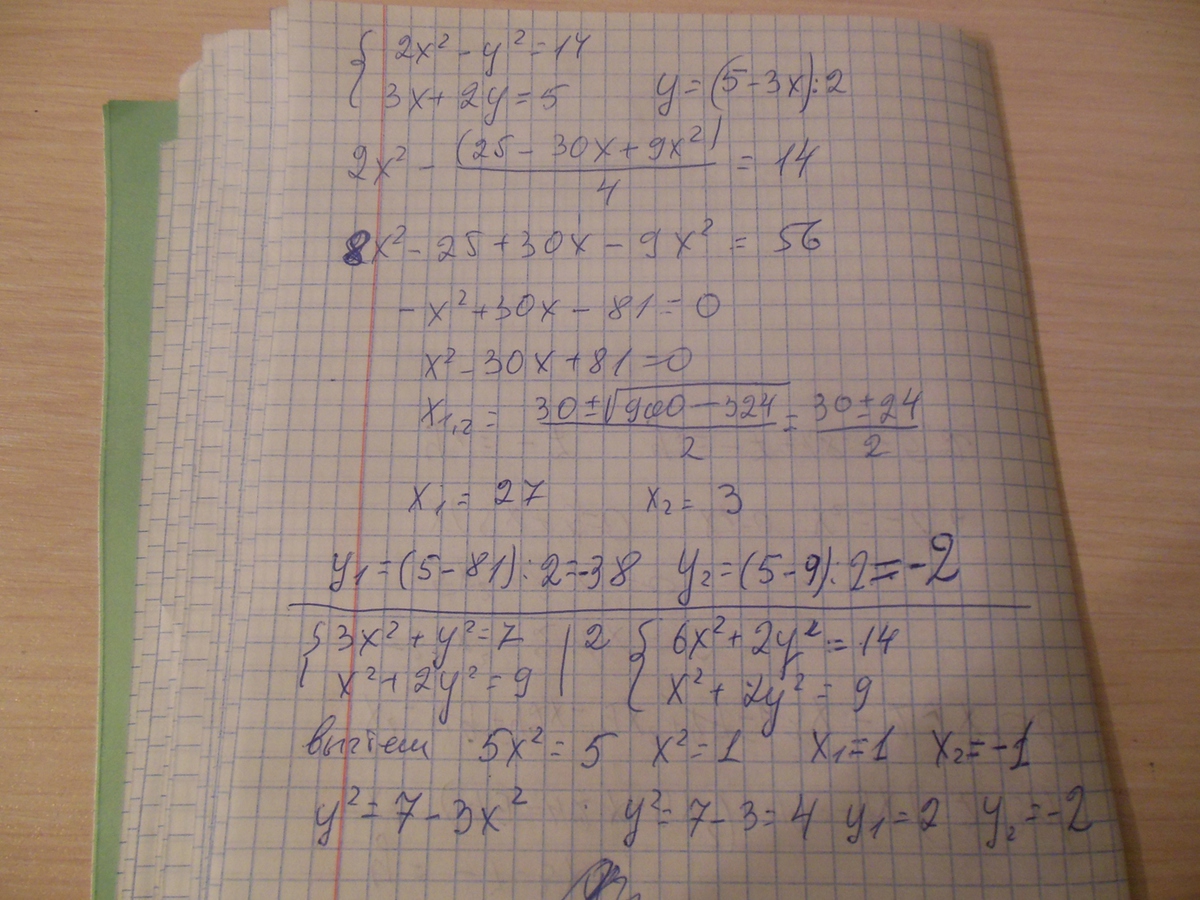 { 2x² - y² = 14
3x + 2y = 5 y = (5 - 3x) : 2
2x² - (25 - 30x + 9x²) / 4 = 14
8x² - 25 + 30x - 9x² = 56
- x² + 30x - 81 = 0
x² - 30x + 81 = 0
x₁,₂ = (30 ± √(900 - 324)) / 2 = (30 ± 24) / 2
x₁ = 27 x₂ = 3
y₁ = (5 - 81) : 2 = -38 y₂ = (5 - 9) : 2 = -2
{ 3x² + y² = 7 | 2 { 6x² + 2y² = 14
x² + 2y² = 9 x² + 2y² = 9
вычтем 5x² = 5 x² = 1 x₁ = 1 x₂ = -1
y² = 7 - 3x² y² = 7 - 3 = 4 y₁ = 2 y₂ = -2